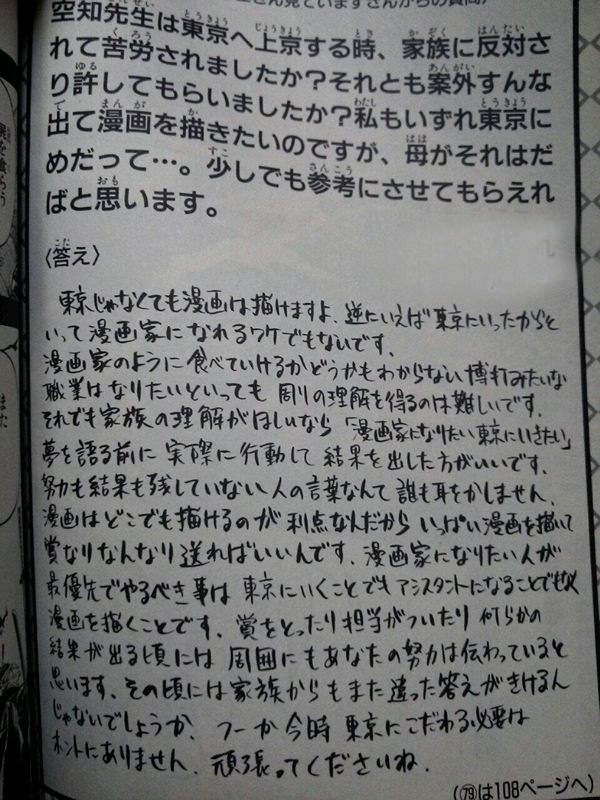 さん見ていますさんからの質問
空知先生は東京へ上京する時、家族に反対さ
れて苦労されましたか？それとも案外すんな
り許してもらいましたか？私もいずれ東京に
出て漫画を描きたいのですが、母がそれはだ
めだって…。少しでも参考にさせてもらえれ
ばと思います。
〈答え〉
東京じゃなくても漫画は描けますよ、逆にいえば東京にいったからと
いって漫画家になれるワケでもないです。
漫画家のように食べていけるかどうかもわからない博打みたいな
職業はなりたいといっても周りの理解を得るのは難しいです。
それでも家族の理解がほしいなら「漫画家になりたい東京にいきたい」
夢を語る前に実際に行動して結果を出した方がいいです。
努力も結果も残していない人の言葉なんて誰も耳をかしません。
漫画はどこでも描けるのが利点なんだからいっぱい漫画を描いて
賞なりなんなり送ればいいんです。漫画家になりたい人が
最優先でやるべき事は東京にいくことでもアシスタントになることでもなく
漫画を描くことです。賞をとったり担当がついたり何らかの
結果が出る頃には周囲にもあなたの努力は伝わっていると
思います。その頃には家族からもまた違った答えがきけるん
じゃないでしょうか、つーか今時東京にこだわる必要は
ホントにありません。頑張ってくださいね。
(79は108ページへ)